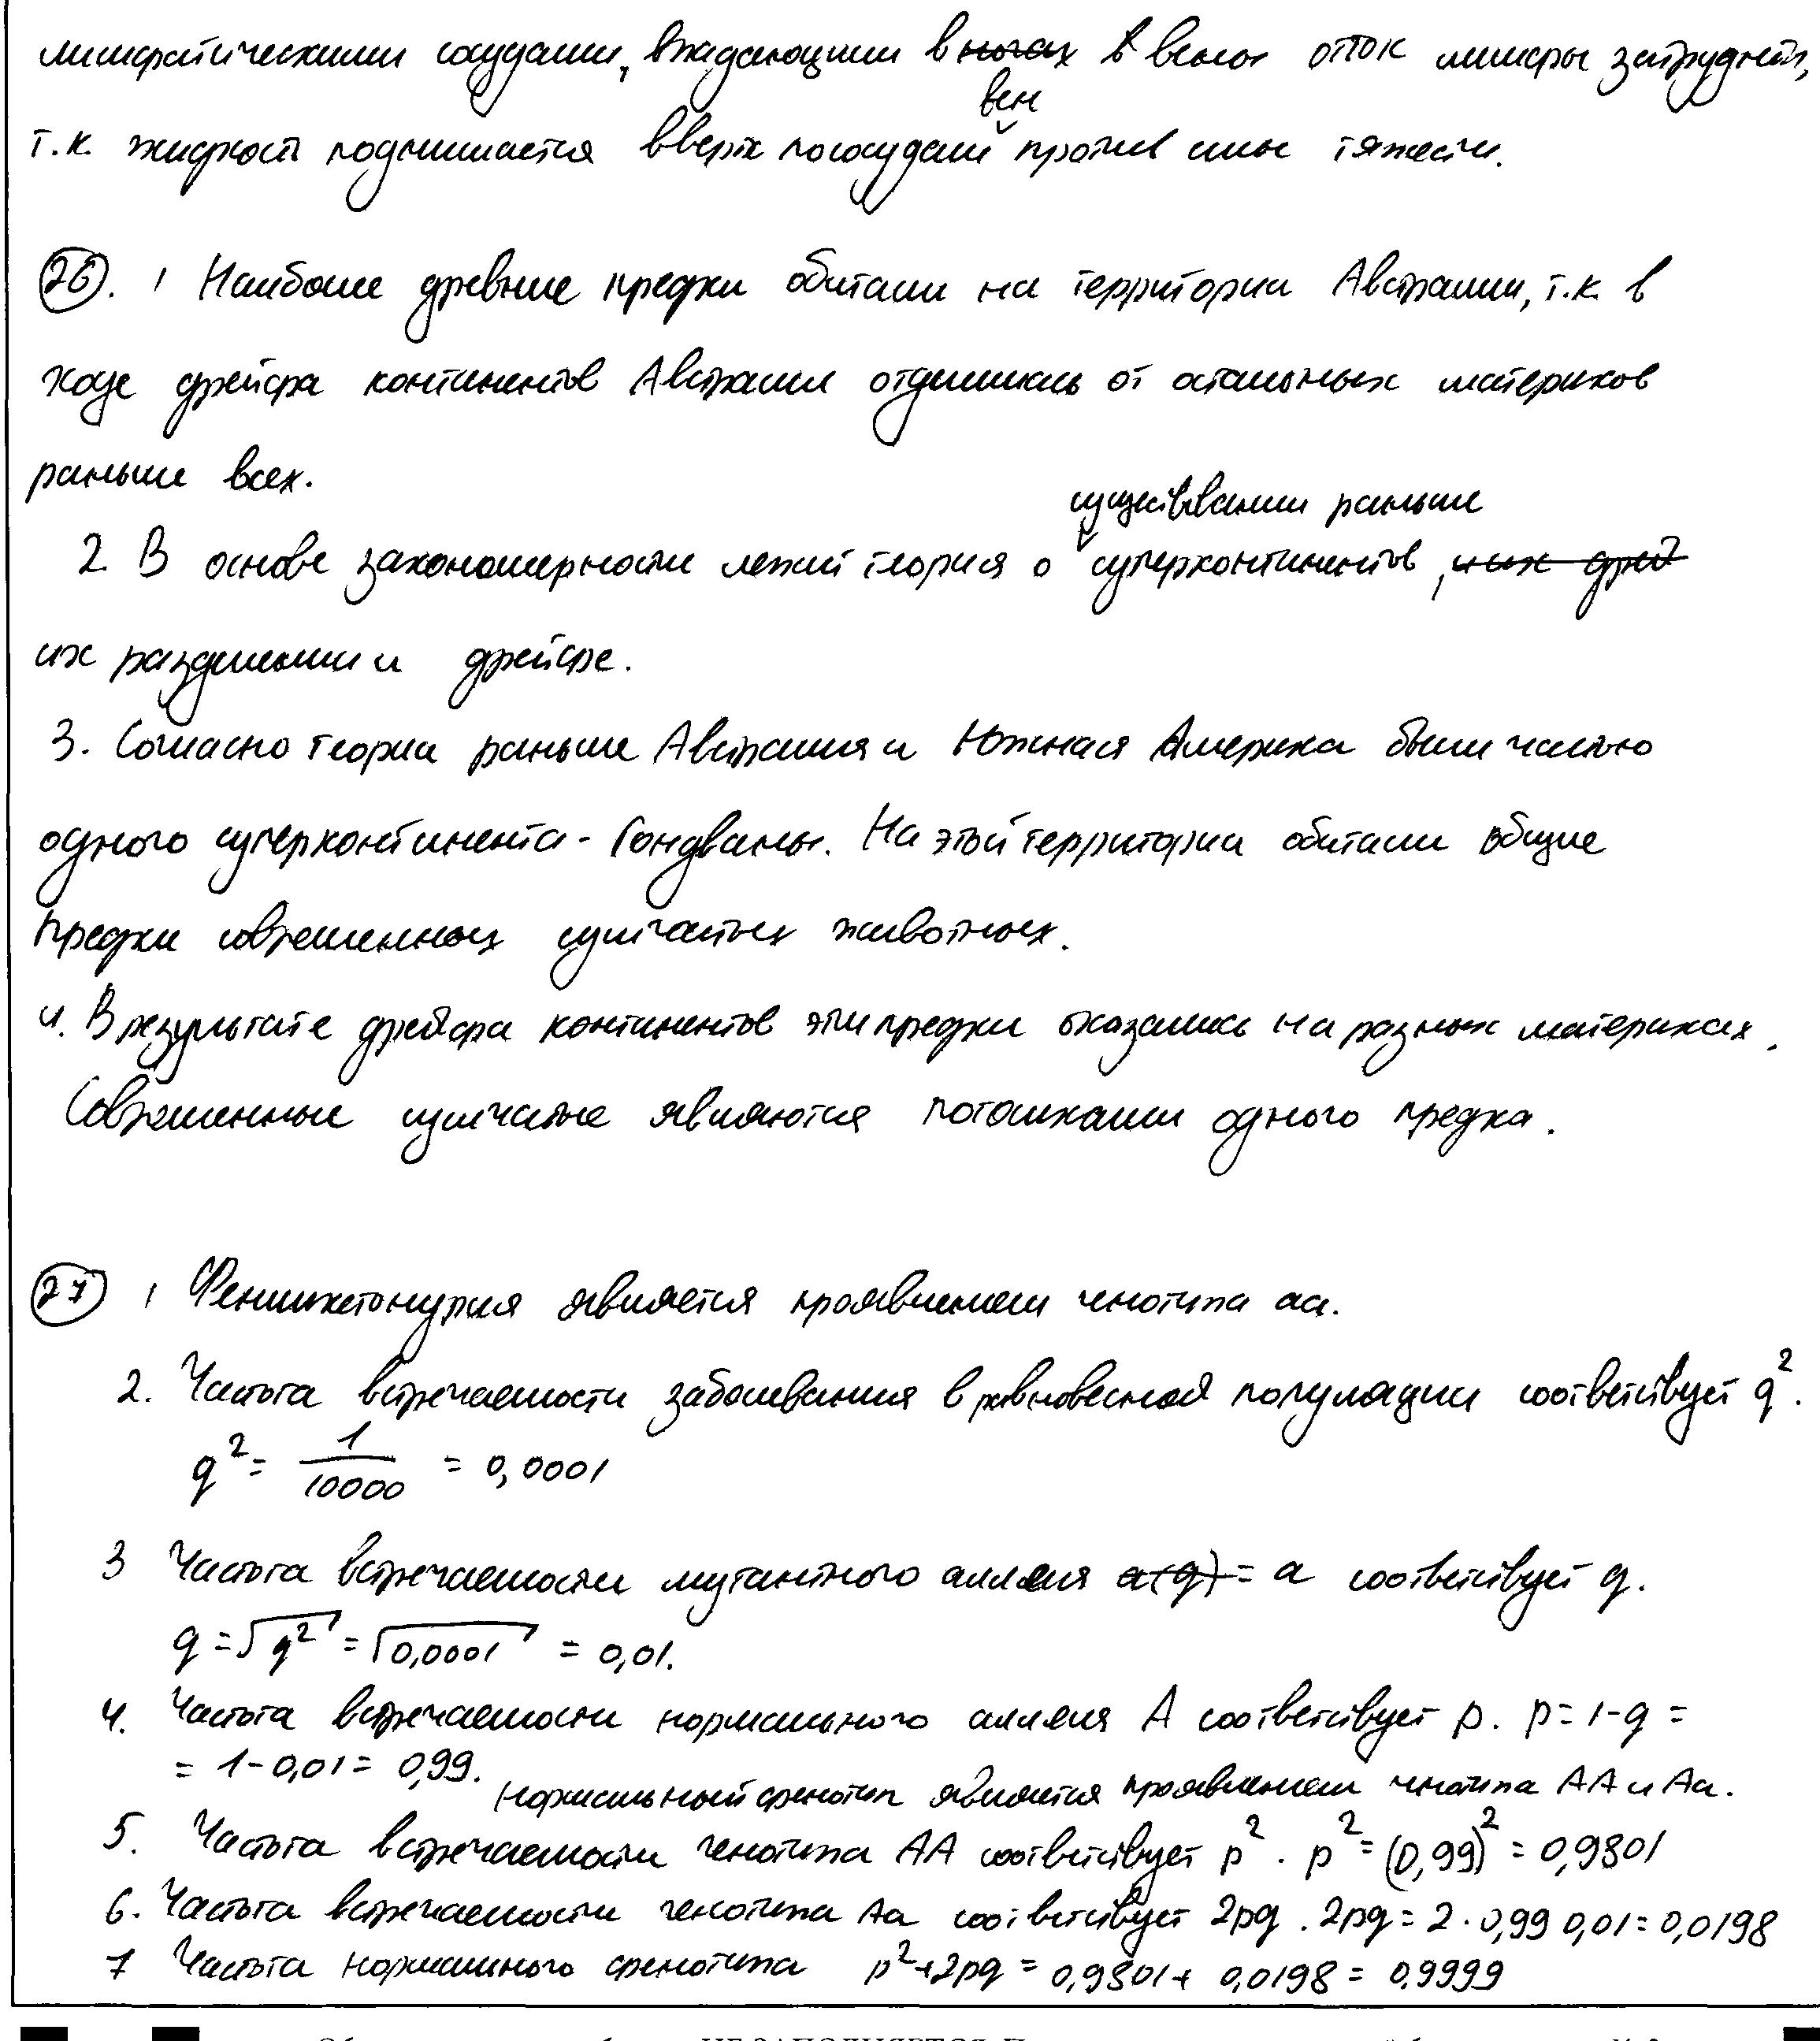 лимфатическими сосудами, впадающими в ногах в вены отток лимфы затруднён,
вен
т.к. жидкость поднимается вверх по сосудам против силы тяжести.
26. 1 Наиболее древние предки обитали на территории Австралии, т.к. в
ходе дрейфа континентов Австралия отделилась от остальных материков
раньше всех.
существовании раньше
2. В основе закономерности лежит теория о суперконтинентов, них дрей
их разделении и дрейфе.
3. Согласно теории раньше Австралия и Южная Америка были частью
одного суперконтинента - Гондваны. На этой территории обитали общие
предки современных сумчатых животных.
4. В результате дрейфа континентов эти предки оказались на разных материках.
Современные сумчатые являются потомками одного предка.
27 1 Фенилкетонурия является проявлением генотипа aa.
2. Частота встречаемости заболевания в равновесной популяции соответствует q².
q² = 1/10000 = 0,0001
3 Частота встречаемости мутантного аллеля a(q) = a соответствует q.
q = √q² = √0,0001 = 0,01.
4. Частота встречаемости нормального аллеля A соответствует p. p = 1-q =
= 1-0,01 = 0,99.
Нормальный фенотип является проявлением генотипа AA и Aa.
5. Частота встречаемости генотипа AA соответствует p². p² = (0,99)² = 0,9801
6. Частота встречаемости генотипа Aa соответствует 2pq. 2pq = 2·0,99 0,01 = 0,0198
7 Частота нормального фенотипа p²+2pq = 0,9801+ 0,0198 = 0,9999